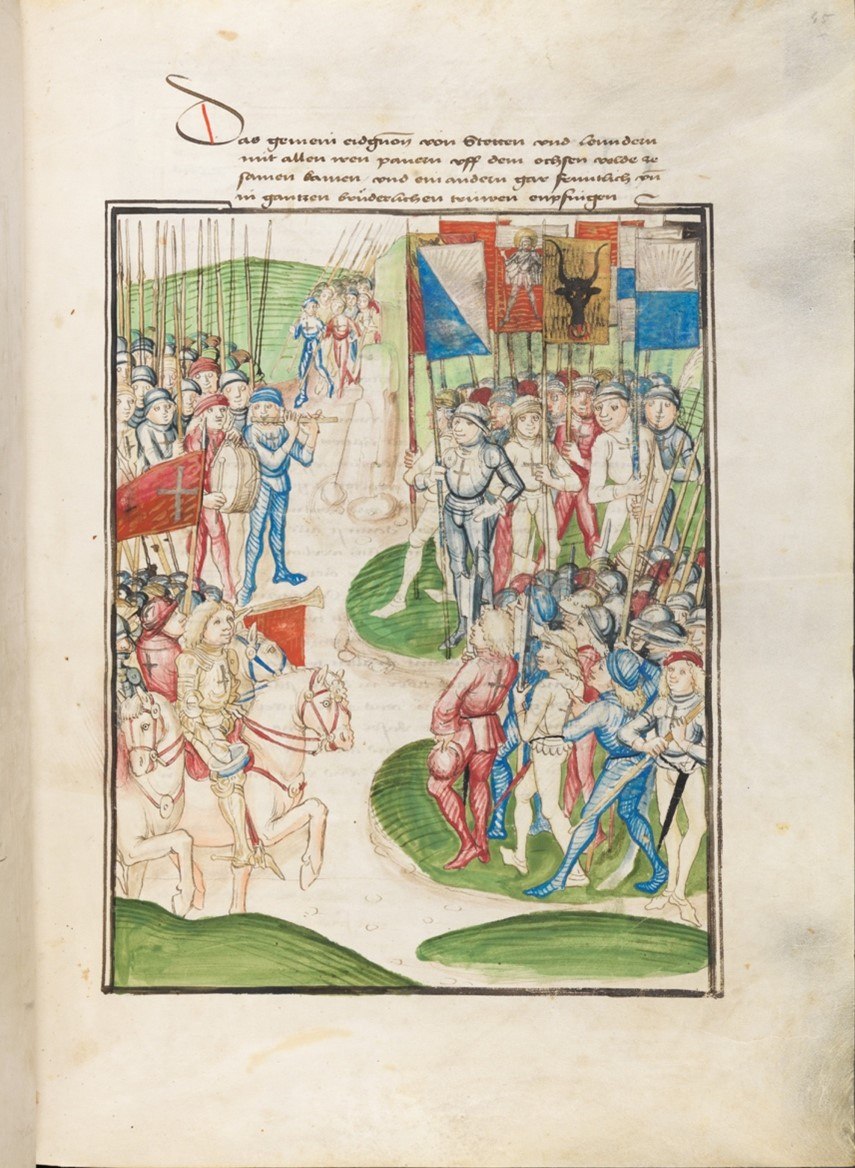 Das gemein eidgnon von Stetten und lenndern
mit allen iren panern uff dem ochsen velde ze
samen kamen und ein andern gar frünntlich un
in gantzen brüderlichen truwen enpfingen
45